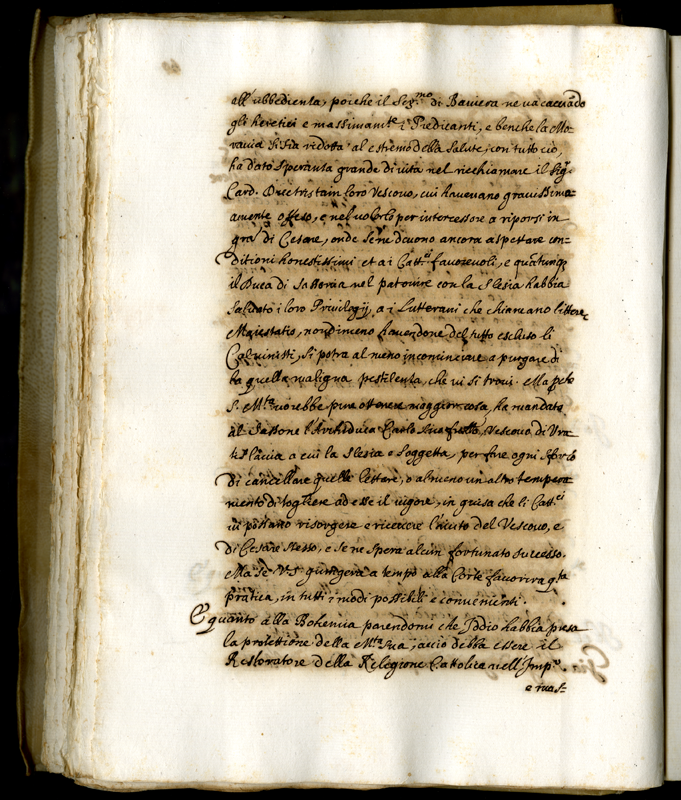 all' ubbedienza, poiche il Ser.mo di Baviera ne va cacciãdo
gli heretici e massimam.te i Predicanti, e benche la Mo-
ravia si sia ridotta al estremo della salute, con tutto ciò,
ha dato speranza grande di vita nel richiamare il Sig.r
Card. Dietristain loro Vescovo, cui havevano gravissima-
amente offeso, e nel volerlo per intercessore a riporsi in
gra. di Cesare, onde se ne devono ancora aspettare con-
ditioni honestissimi et ai Catt.ci favorevoli, e quãtunq;
il Duca di Sassonia nel patovire con la Slesia habbia
salvato i loro Privilegij, a i Lutterani che chiamano littere
Maiestatis, nondimeno havendone del tutto escluso li
Calvinisti, si potra al meno incominciare a purgare di
ta quella maligna pestilenza, che vi si trovi. Ma p.che
S. M.ta vorebbe pure ottenere maggior cosa, ha mandato
al Sassone l'Archiduca Carlo suo frãllo, Vescovo di Vra-
tislavia a cui la Slesia e soggetta, per fare ogni sforzo
di cancellare quelle lettere, o almeno un altro tempera
mento di togliere ad esse il vigore, in guisa che li Catt.ci
vi possano risorgere e ricevere l'aiuto del Vescovo, e
di Cesare stesso, e se ne spera alcun fortunato successo.
Ma se V.S. giungera a tempo alla Corte favorira q.ta
pratica, in tutti i modi possibili e convenienti.
E quanto alla Bohemia parendomi che Iddio habbia presa
la protettione della M.ta sua, acciò debba essere il
Restoratore della Relegione Cattolica nell' Imp.o